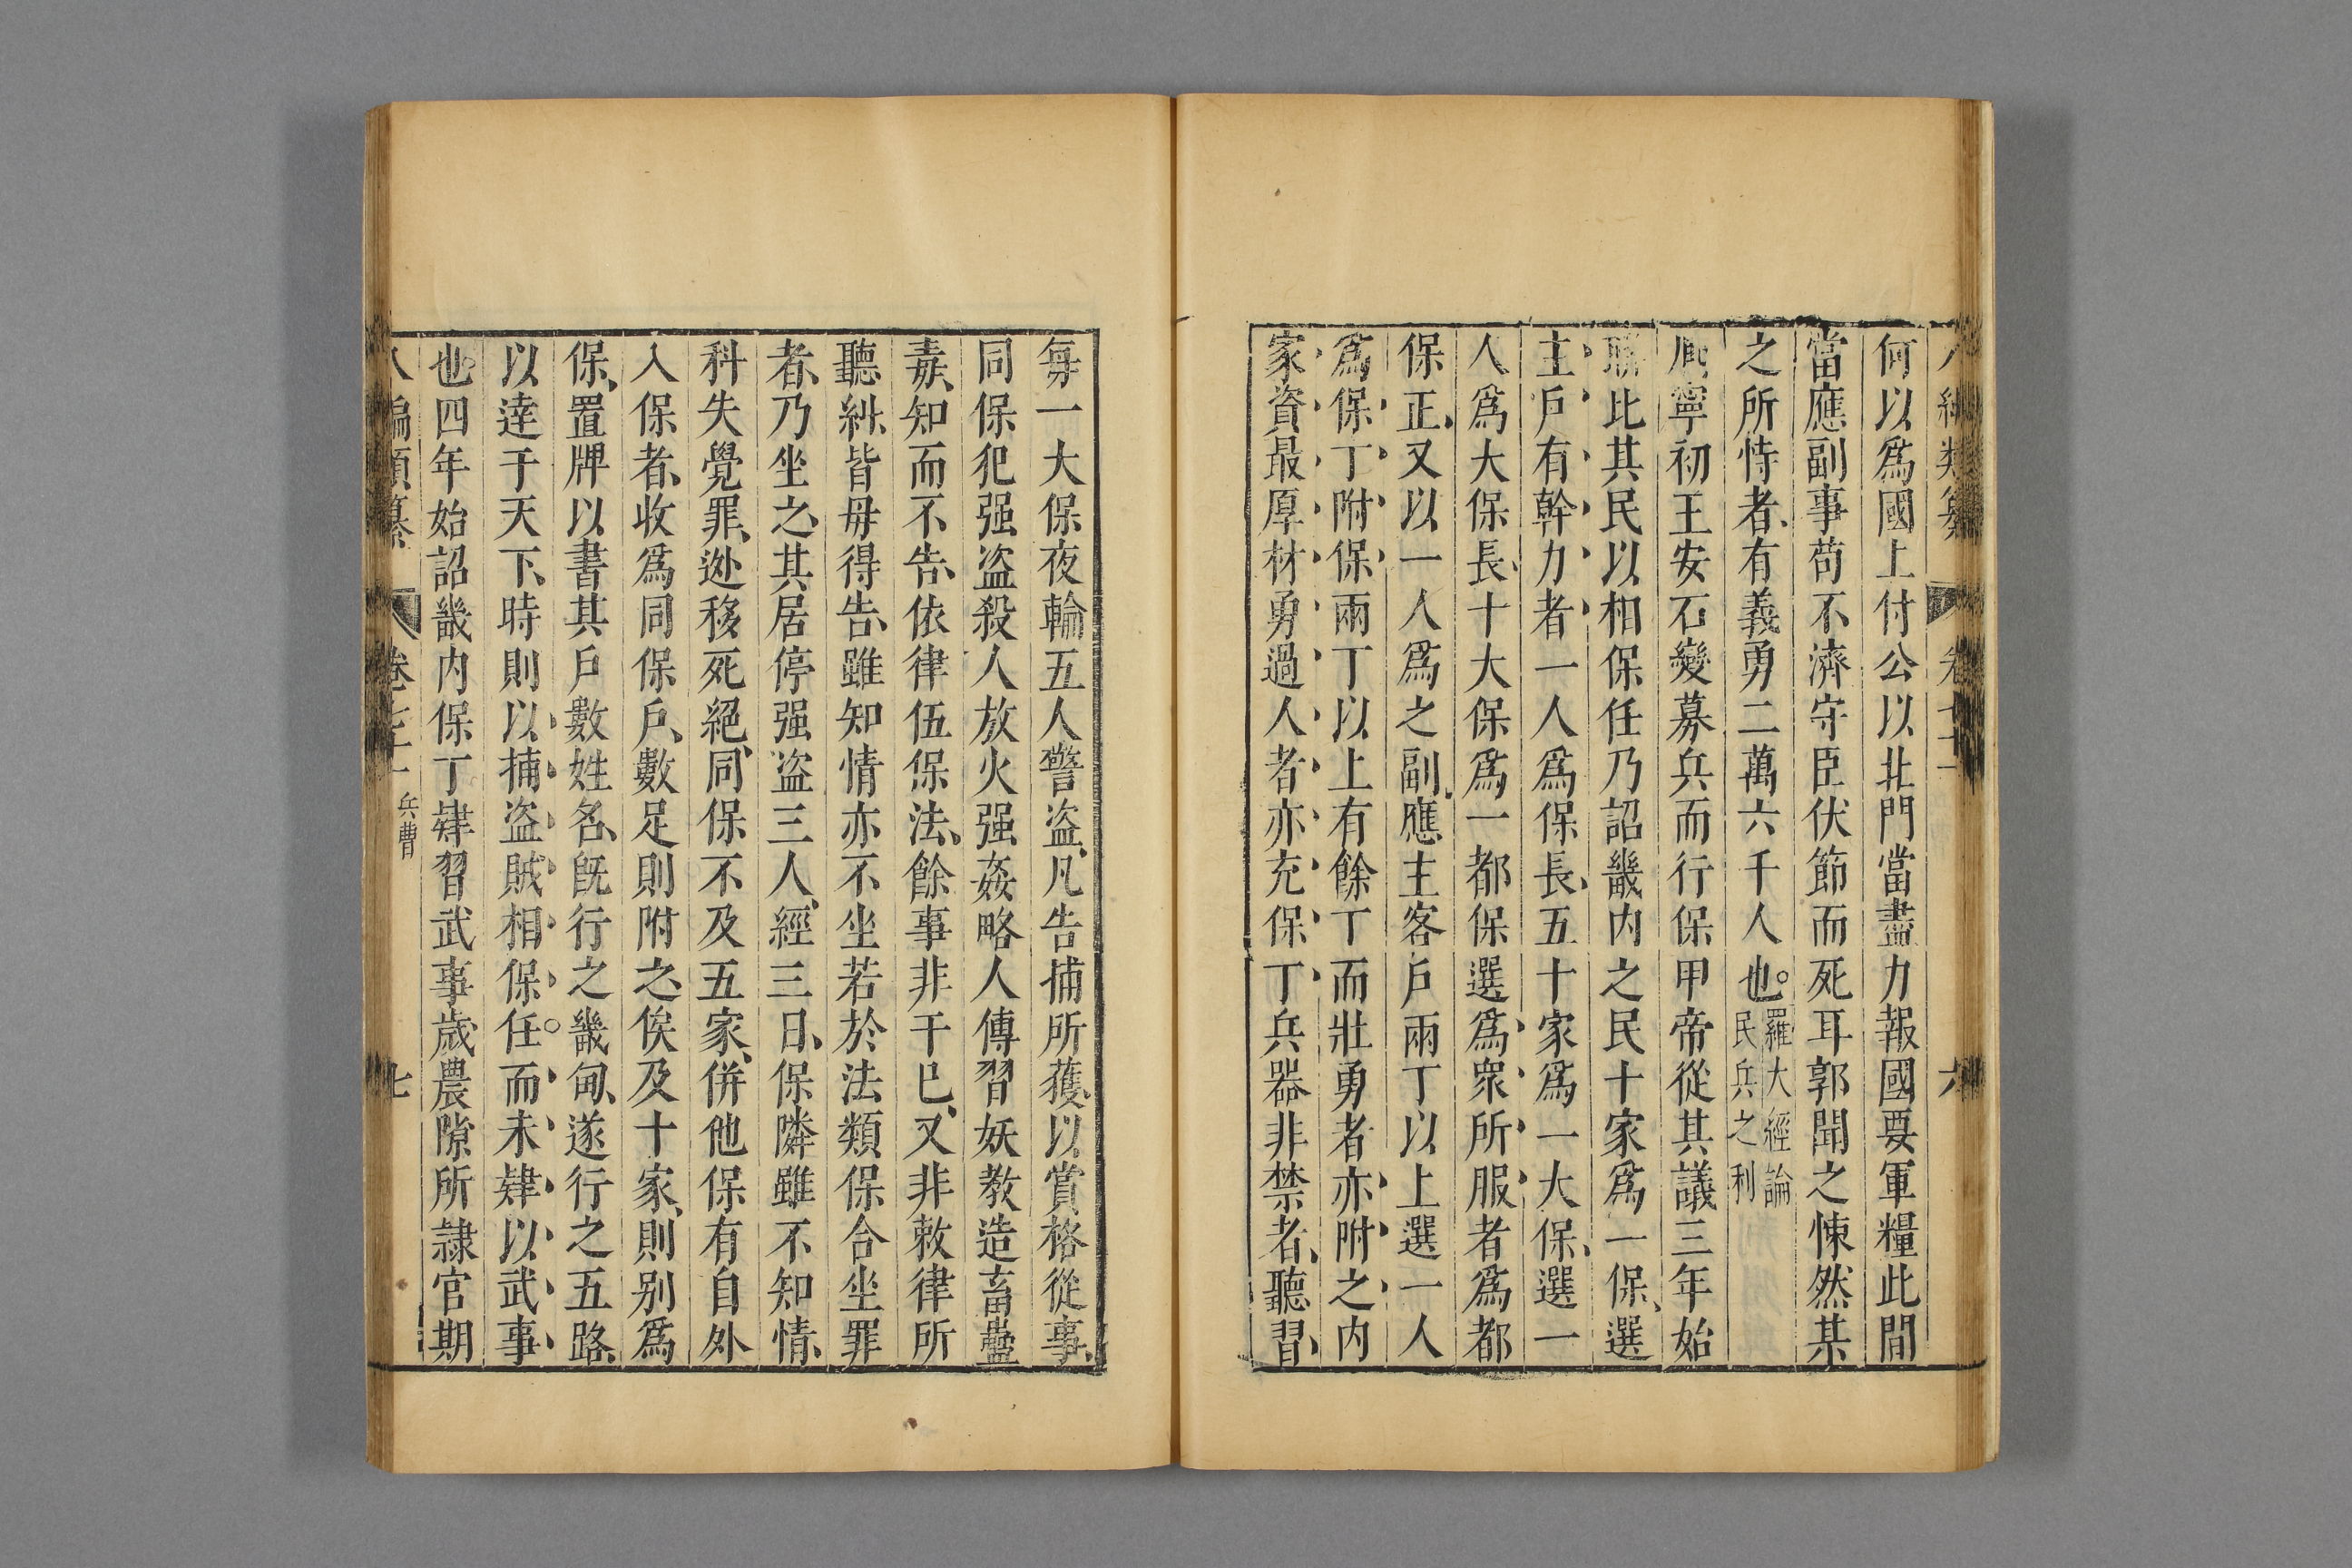 何以爲國上付公以北門當盡力報國要軍糧此間
當應副事茍不濟守臣伏節而死耳郭聞之悚然某
之所恃者有義勇二萬六千人也。羅大經論
民兵之利
熈寧初王安石變募兵而行保甲帝從其議三年始
聯比其民以相保任乃詔畿内之民十家爲一保選
主戶有幹力者一人爲保長五十家爲一大保選一
人爲大保長十大保爲一都保選爲衆所服者爲都
保正又以一人爲之副應主客戶兩丁以上選一人
爲保丁附保兩丁以上有餘丁而壯勇者亦附之内
家資最厚材勇過人者亦充保丁兵器非禁者聽習
每一大保夜輪五人警盗凡告捕所獲以賞格從事
同保犯强盗殺人放火强姦略人傳習妖教造畜蠱
毒知而不告依律伍保法餘事非干已又非敕律所
聽糾皆毋得告雖知情亦不坐若於法類保合坐罪
者乃坐之其居停强盗三人經三日保隣雖不知情
科失覺罪逊移死絕同保不及五家併他保有自外
入保者收爲同保戶數足則附之俟及十家則别爲
保置牌以書其戶數姓名旣行之畿甸遂行之五路
以達于天下時則以捕盗賊相保任。而未肄以武事
也四年始詔畿内保丁肄習武事歲農隙所隷官期
八編類纂 卷七十一 兵曹 七